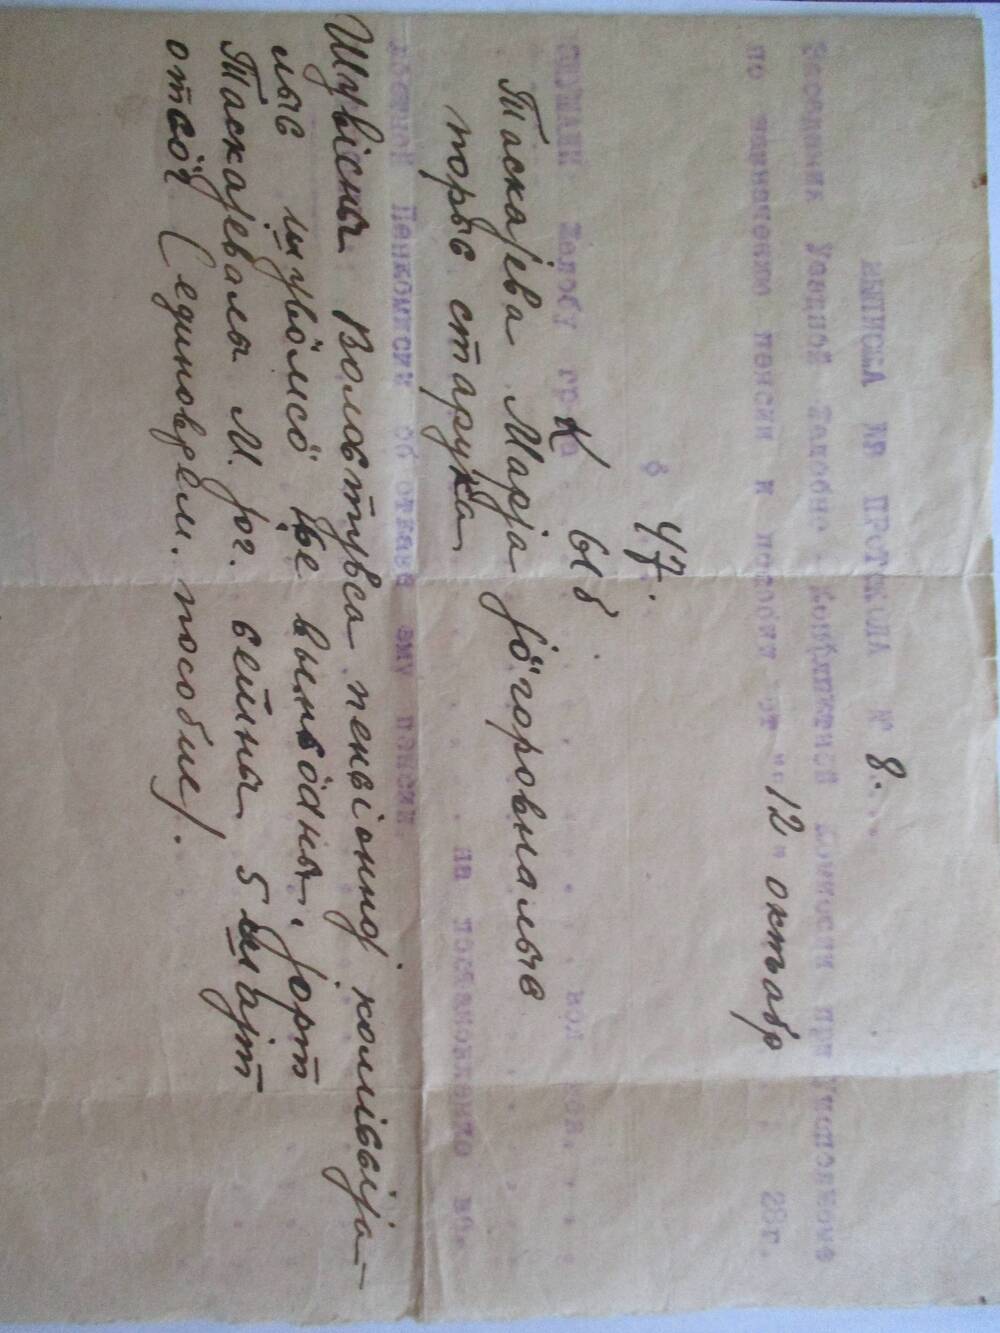 ВЫПИСКА ИЗ ПРОТОКОЛА № 8.
Заседания Уездной Жалобно - Конфликтной Комиссии при Уисполкоме
по назначению пенсии и пособия от "12" октԃабр 28г.
§ 47.
К ыԅ
СЛУШАЛИ: Жалобу гр-на вол
Таскајева Марја јӧгоровналыԍ
порыԍ старука на постановление во-
лостной Пенкомисии об отказе ему пенсии.
Шувісны Волоԍтувса пенԍіонној коміԍԍіја-
лыԍ шувӧмсӧ ԋе выԉԍӧԁны. јорт
Таскајевалы М. јог. ԍетны 5 шајт
отԍӧг (единоврем. пособие).